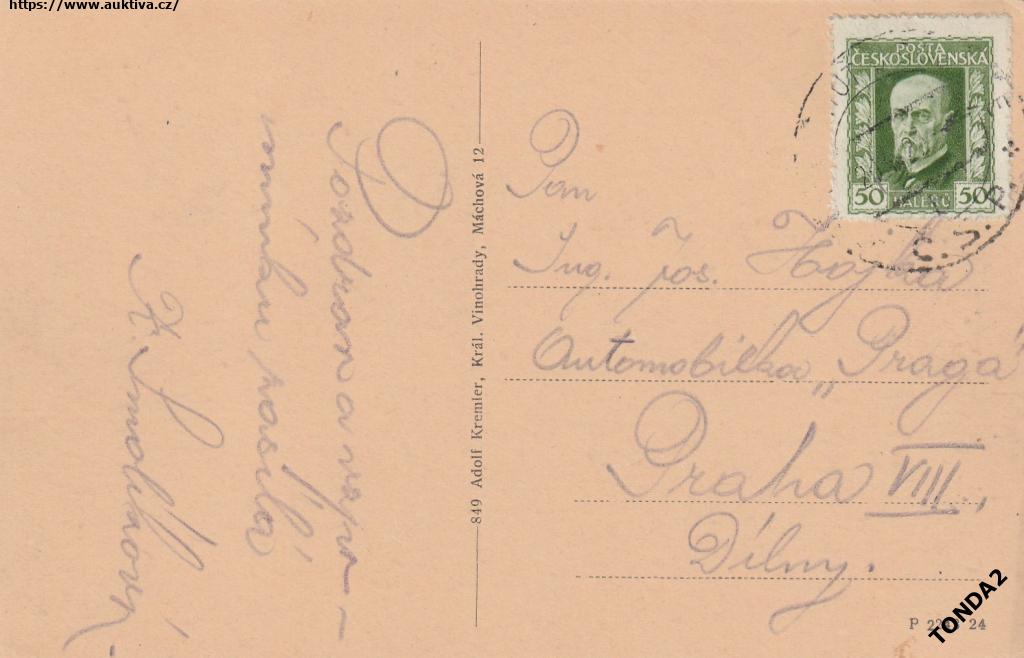 https://www.auktiva.cz/
Pozdrav a vzpo-
mínku posílá
849 Adolf Kremler, Král. Vinohrady, Máchová 12
POŠTA
ČESKOSLOVENSKÁ
50 HALÉŘŮ 50
Pan
Ing. Jos.
Automobilka „Praga
Praha VIII,
Dílny.
TONDA2